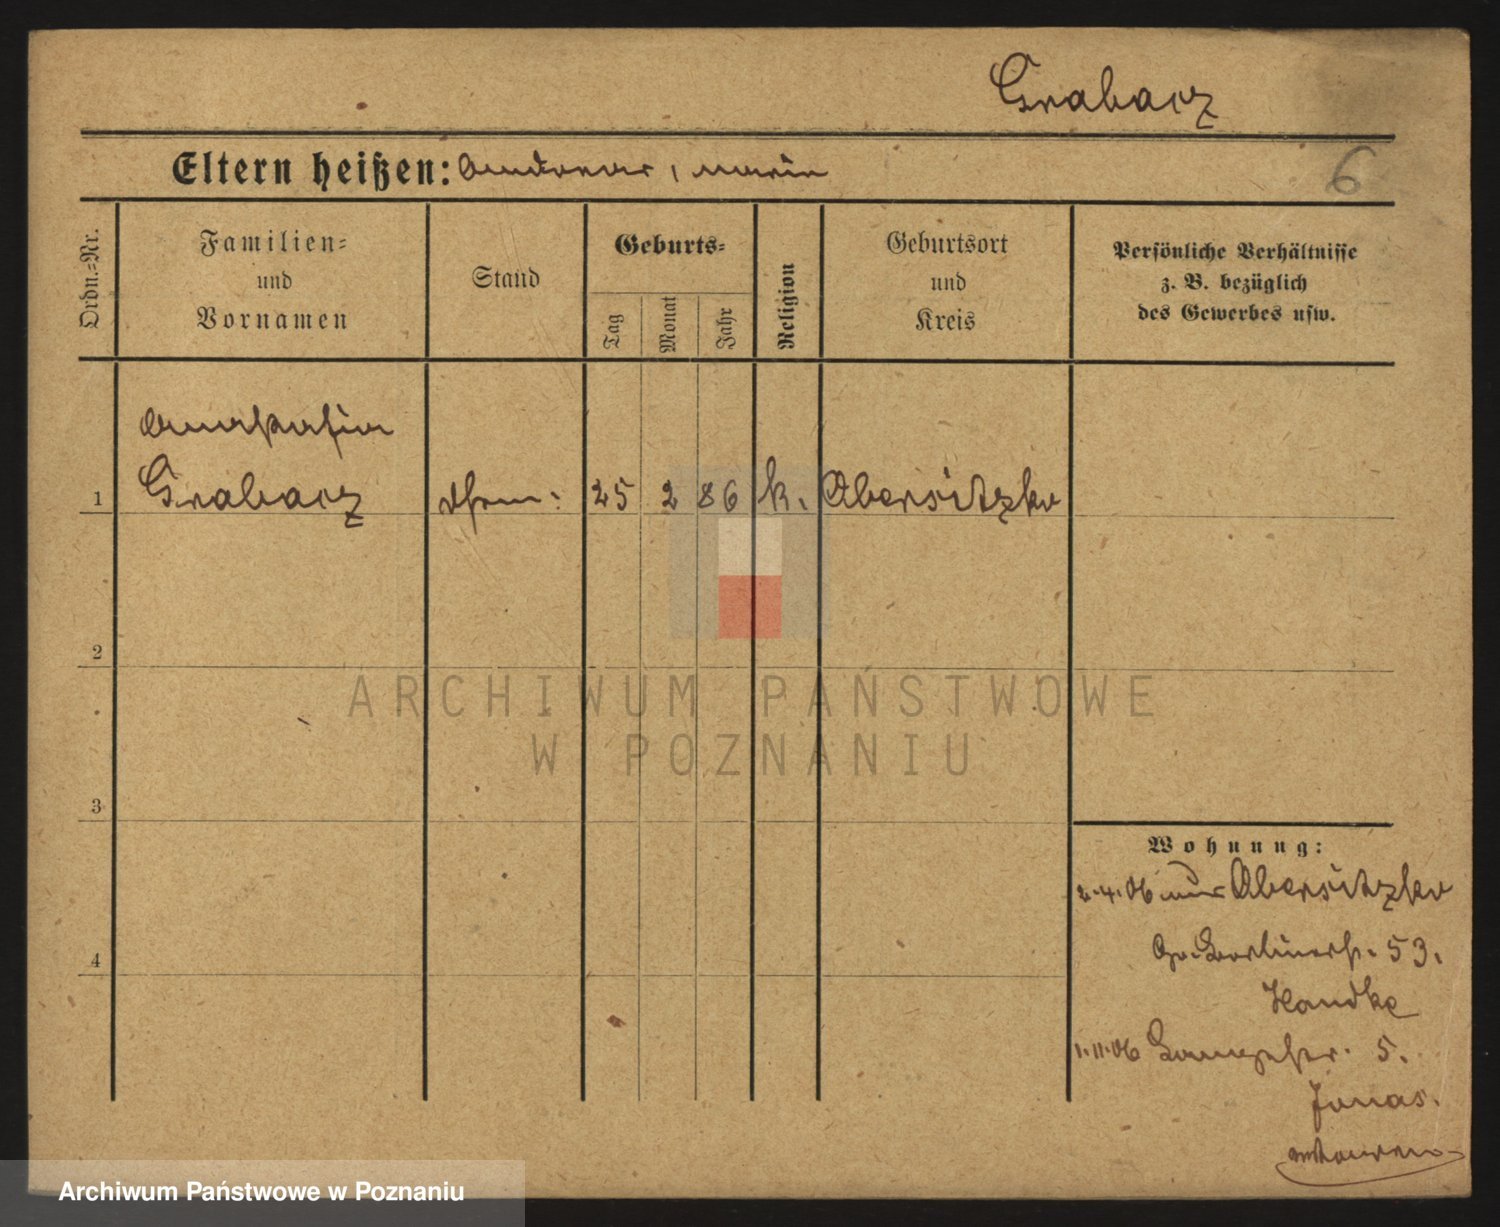 Grabacz
Eltern heißen: Andreas, Marie
6
Ordn.=Nr.
Familien=
und
Vornamen
Stand
Geburts=
Tag
Monat
Jahr
Religion
Geburtsort
und
Kreis
Persönliche Verhältnisse
z. B. bezüglich
des Gewerbes usw.
Anastasia
1 Grabacz 25 2 86 k. Obersitzko
2
3
4
ARCHIWUM PAŃSTWOWE
W POZNANIU
Wohnung:
2.4.06 aus Obersitzko
Gr. Berlinerst. 53.
Handke
1.11.06 5.
Jonas.
Archiwum Państwowe w Poznaniu